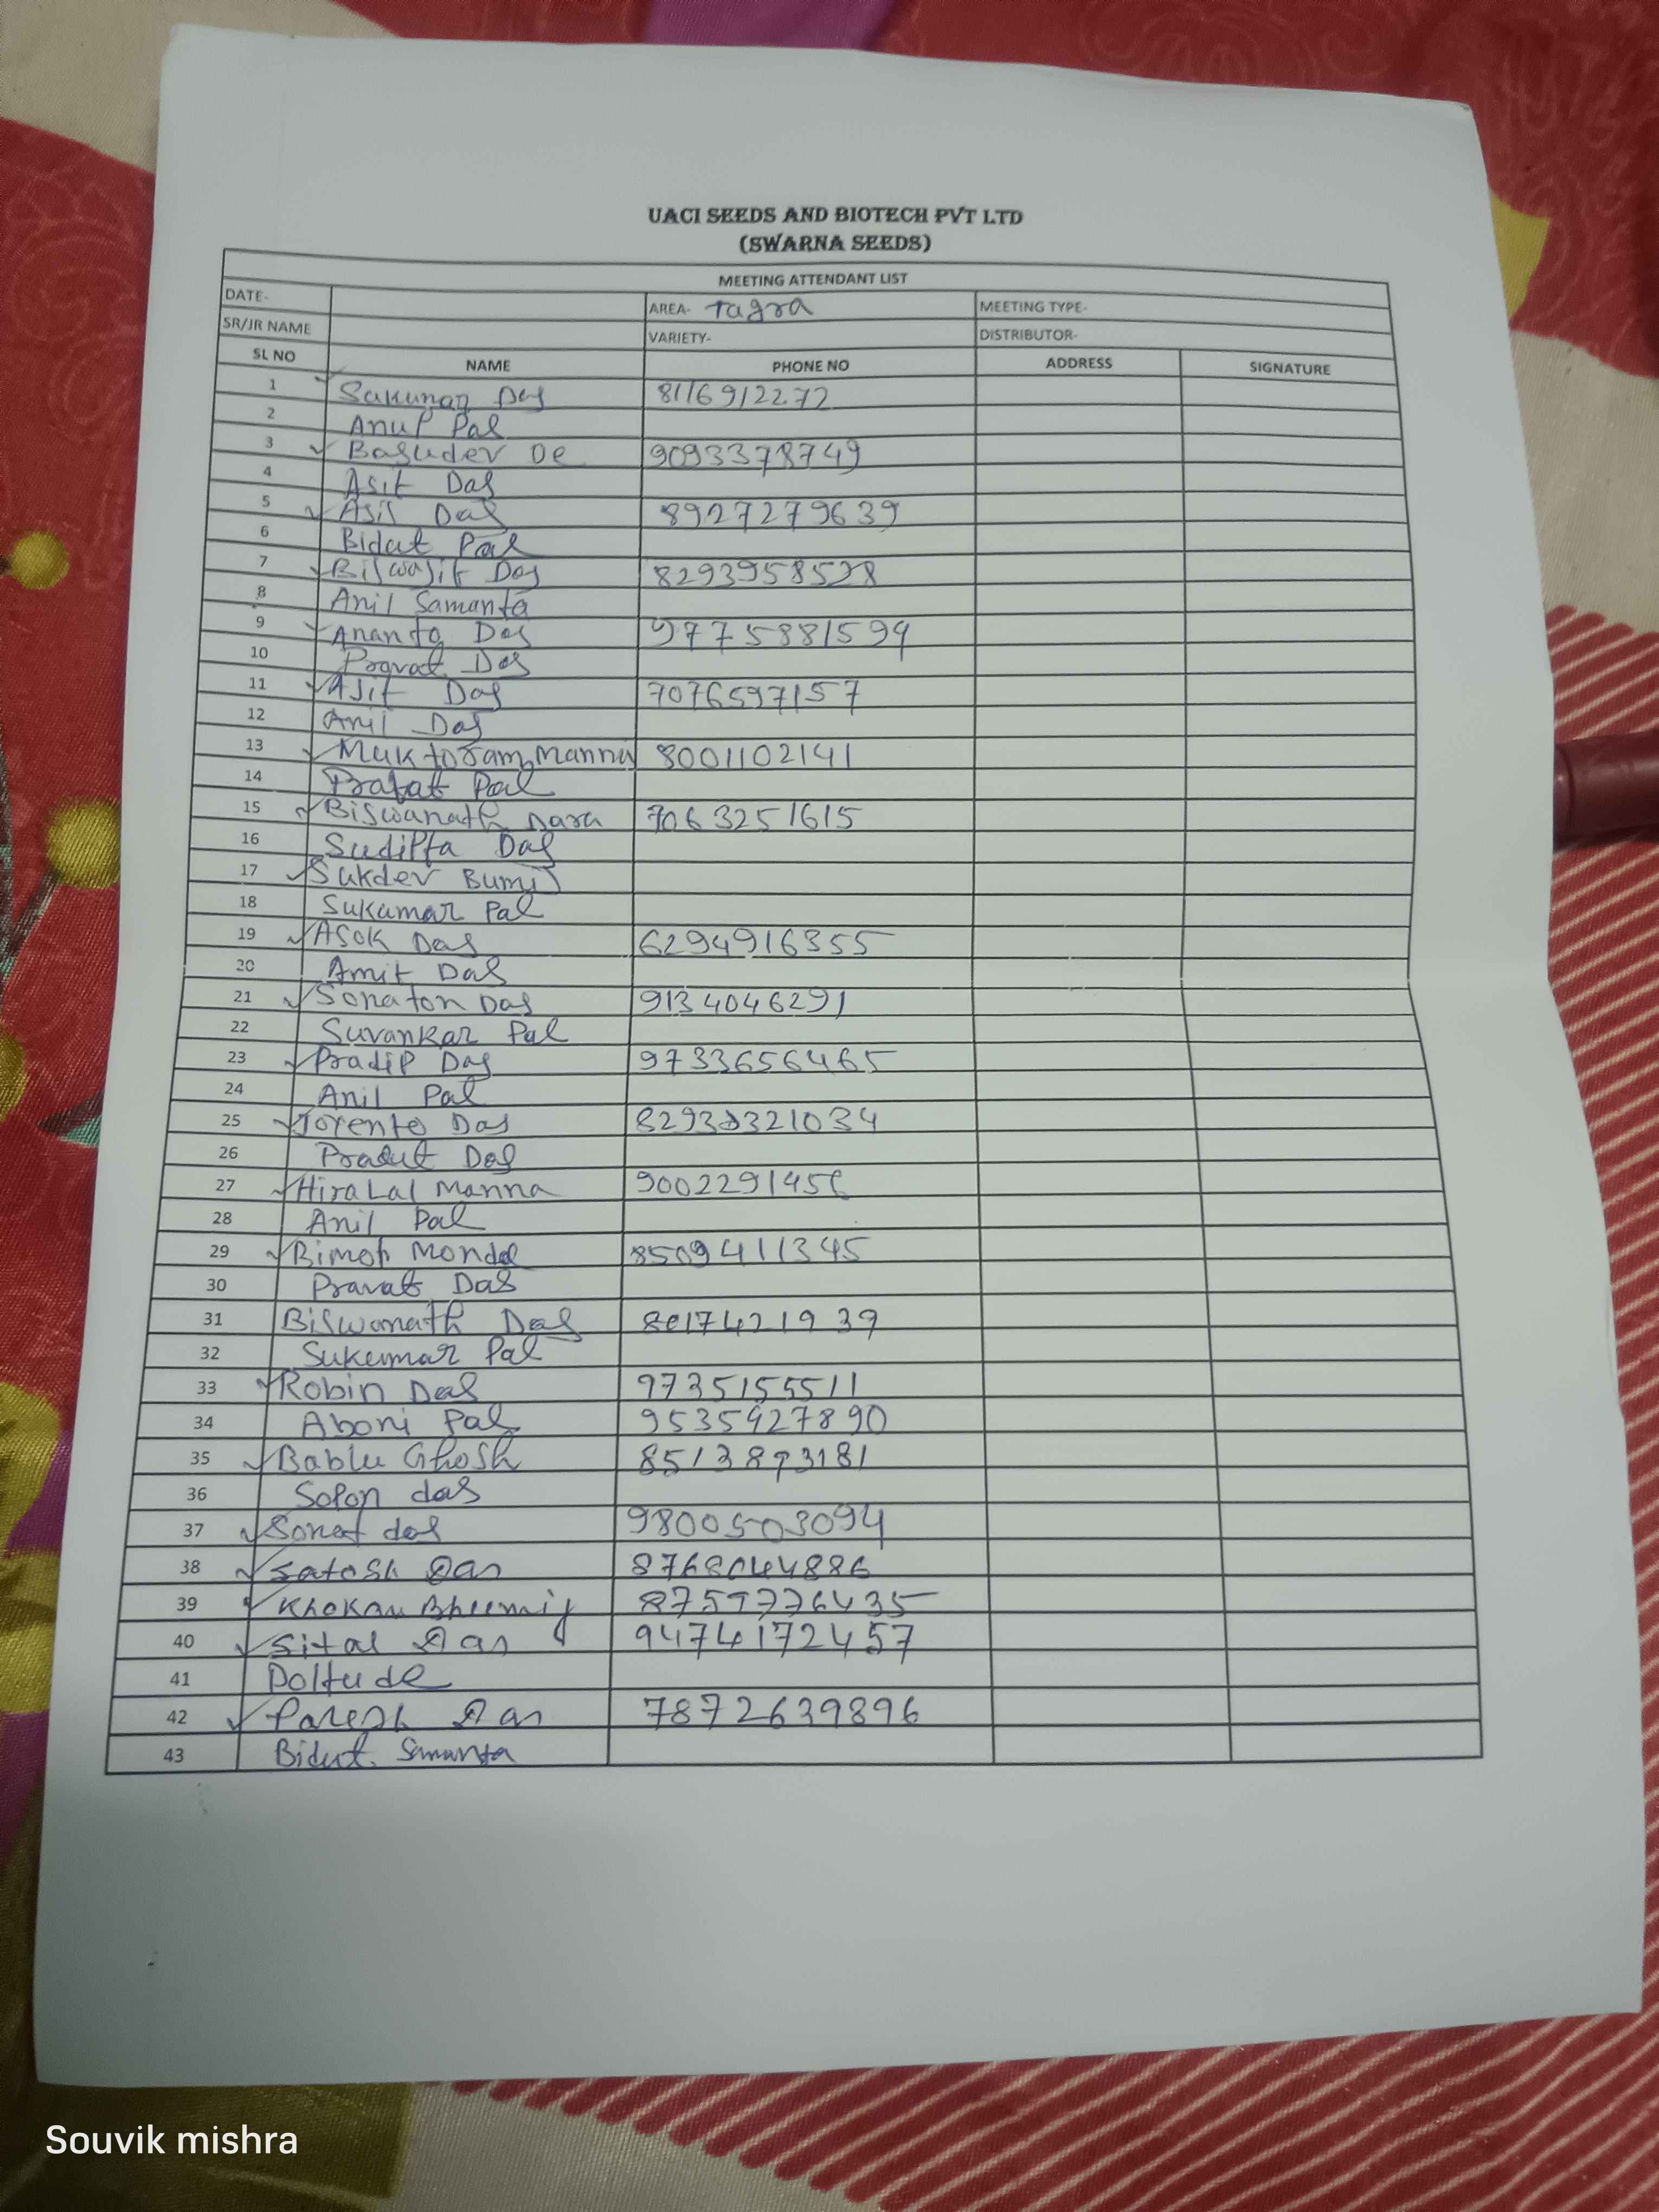 UACI SEEDS AND BIOTECH PVT LTD
(SWARNA SEEDS)
MEETING ATTENDANT LIST
DATE- AREA- Tagra MEETING TYPE-
SR/JR NAME VARIETY- DISTRIBUTOR-
SL NO NAME PHONE NO ADDRESS SIGNATURE
1 Das 8116912272
2 Anup Pal
3 Basudev De 9093378749
4 Asit Das
5 Asis Das 8927279639
6 Bidut Pal
7 Biswajit Das 8293958528
8 Anil Samanta
9 Ananta Das 9775881599
10 Provat Das
11 Ajit Das 7076597157
12 Anil Das
13 Muktoram Manna 8001102141
14 Prafat Pal
15 Biswanath Dara 7063251615
16 Sudipta Das
17 Sukdev Bumij
18 Sukumar Pal
19 Asok Das 6294916355
20 Amit Das
21 Sonaton Das 9134046291
22 Suvankar Pal
23 Pradip Das 9733656465
24 Anil Pal
25 Joyento Das
26 Pradut Das
27 Hiralal Manna 9002291456
28 Anil Pal
29 Bimol Mondal 8509411345
30 Pravat Das
31 Biswanath Das 8017421939
32 Sukumar Pal
33 Robin Das 9735155511
34 Aboni Pal 9535927890
35 Bablu Ghosh 8513893181
36 Sopon das
37 Sonat das 9800503094
38 Satosh Das 8768044886
39 Khokan Bhumij 8759776435
40 Sital Das 9474172457
41 Poltu de
42 Paresh Das 7872639896
43 Bidut. Samanta
Souvik mishra